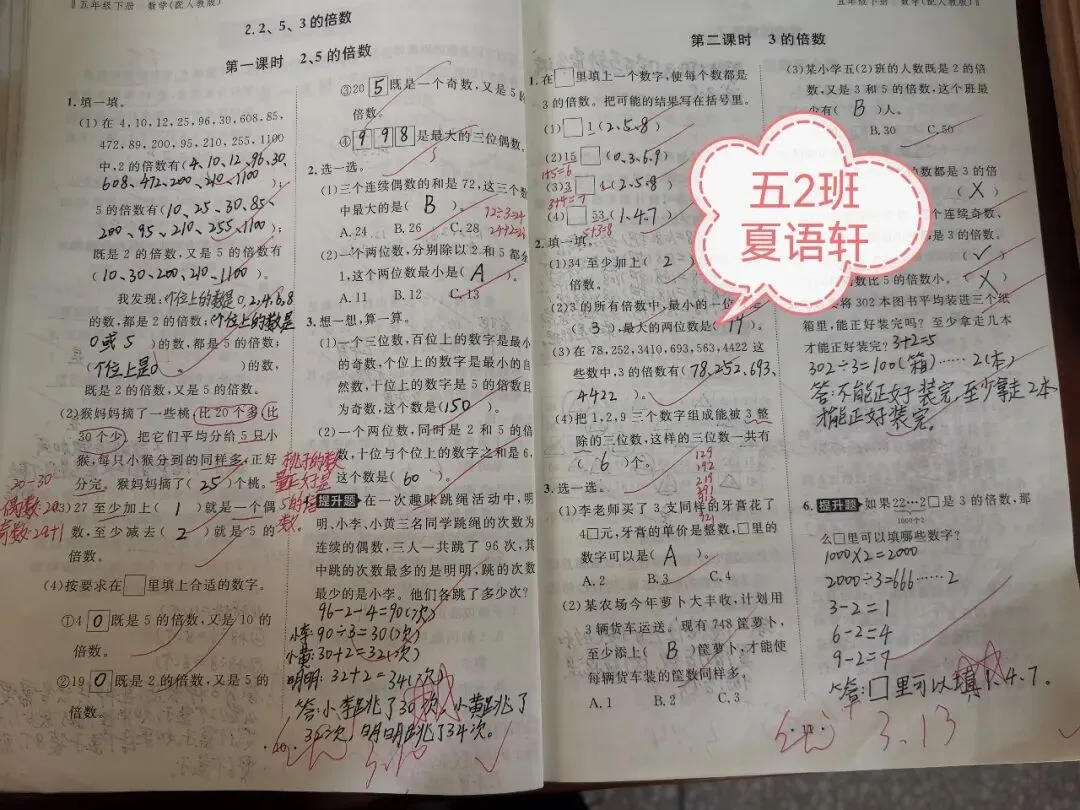 五年级下册 数学(配人教版)
2.2、5、3的倍数
第一课时 2、5的倍数
1.填一填。
(1)在4,10,12,25,96,30,608,85,
472,89,200,95,210,255,1100
中,2的倍数有(4、10、12、96、30、
608、472、200、210、1100);
5的倍数有(10、25、30、85、
200、95、210、255、1100);
既是2的倍数,又是5的倍数有
(10、30、200、210、1100)。
我发现:个位上的数是0,2,4,6,8
的数,都是2的倍数;个位上的数是
0或5)的数,都是5的倍数;
(个位上是0)的数,
既是2的倍数,又是5的倍数。
(2)猴妈妈摘了一些桃,比20个多,比
30个少。把它们平均分给5只小
猴,每只小猴分到的同样多,正好
分完。猴妈妈摘了(25)个桃。
20-30
桃子的数
量正好是
5的倍
数。
偶数:2a
奇数:2a+1
(3)27至少加上(1)就是一个偶
数,至少减去(2)就是5的
倍数。
(4)按要求在□里填上合适的数字。
①4 0 既是5的倍数,又是10的
倍数。
②19 0 既是2的倍数,又是5的
倍数。
③20 5 既是一个奇数,又是5的
倍数。
④9 9 8 是最大的三位偶数。
2.选一选。
(1)三个连续偶数的和是72,这三个数
中最大的是(B)。
A.24 B.26 C.28
72÷3=24
24+2=26
(2)一个两位数,分别除以2和5都余
1,这个两位数最小是(A)。
A.11 B.12 C.13
3.想一想,算一算。
(1)一个三位数,百位上的数字是最小
的奇数,个位上的数字是最小的自
然数,十位上的数字是5的倍数且
为奇数,这个数是(150)。
(2)一个两位数,同时是2和5的倍
数,十位与个位上的数字之和是6,
这个数是(60)。
提升题 在一次趣味跳绳活动中,明
明、小李、小黄三名同学跳绳的次数为
连续的偶数,三人一共跳了96次,其
中跳的次数最多的是明明,跳的次数
最少的是小李。他们各跳了多少次?
96-2-4=90(次)
小李:90÷3=30(次)
小黄:30+2=32(次)
明明:32+2=34(次)
答:小李跳了30次,小黄跳了
32次,明明跳了34次。
五年级下册 数学(配人教版)
第二课时 3的倍数
1.在□里填上一个数字,使每个数都是
3的倍数。把可能的结果写在括号里。
(1)□1(2、5、8)
(2)15□(0、3、6、9)
1+5=6
(3)3□4(2、5、8)
3+4=7
(4)□53(1、4、7)
5+3=8
2.填一填。
(1)34至少加上(2
倍数。
(2)3的所有倍数中,最小的一位
(3),最大的两位数是(
)。
(3)在78,252,3410,693,563,4422这
些数中,3的倍数有(78、252、693、
4422)。
(4)把1,2,9三个数字组成能被3整
除的三位数,这样的三位数一共有
(6)个。
129
192
219
3.选一选。
(1)李老师买了3支同样的牙膏花了
4□元,牙膏的单价是整数,□里的
数字可以是(A)。
A.2 B.3 C.4
(2)某农场今年萝卜大丰收,计划用
3辆货车运送。现有748筐萝卜,
至少添上(B)筐萝卜,才能使
每辆货车装的筐数同样多。
A.1 B.2 C.3
(3)某小学五(2)班的人数既是2的倍
数,又是3和5的倍数,这个班最
少有(B)人。
B.30 C.50
数都是3的倍
(X)
个连续奇数,
是3的倍数。
(√)
数比5的倍数小。(X)
将302本图书平均装进三个纸
箱里,能正好装完吗?至少拿走几本
才能正好装完?3+2=5
302÷3=100(箱)……2(本)
答:不能正好装完,至少拿走2本
才能正好装完。
6.提升题 如果22…2□是3的倍数,那
1000个2
么□里可以填哪些数字?
1000×2=2000
2000÷3=666……2
3-2=1
6-2=4
9-2=7
答:□里可以填1、4、7。
五2班
夏语轩
3.13